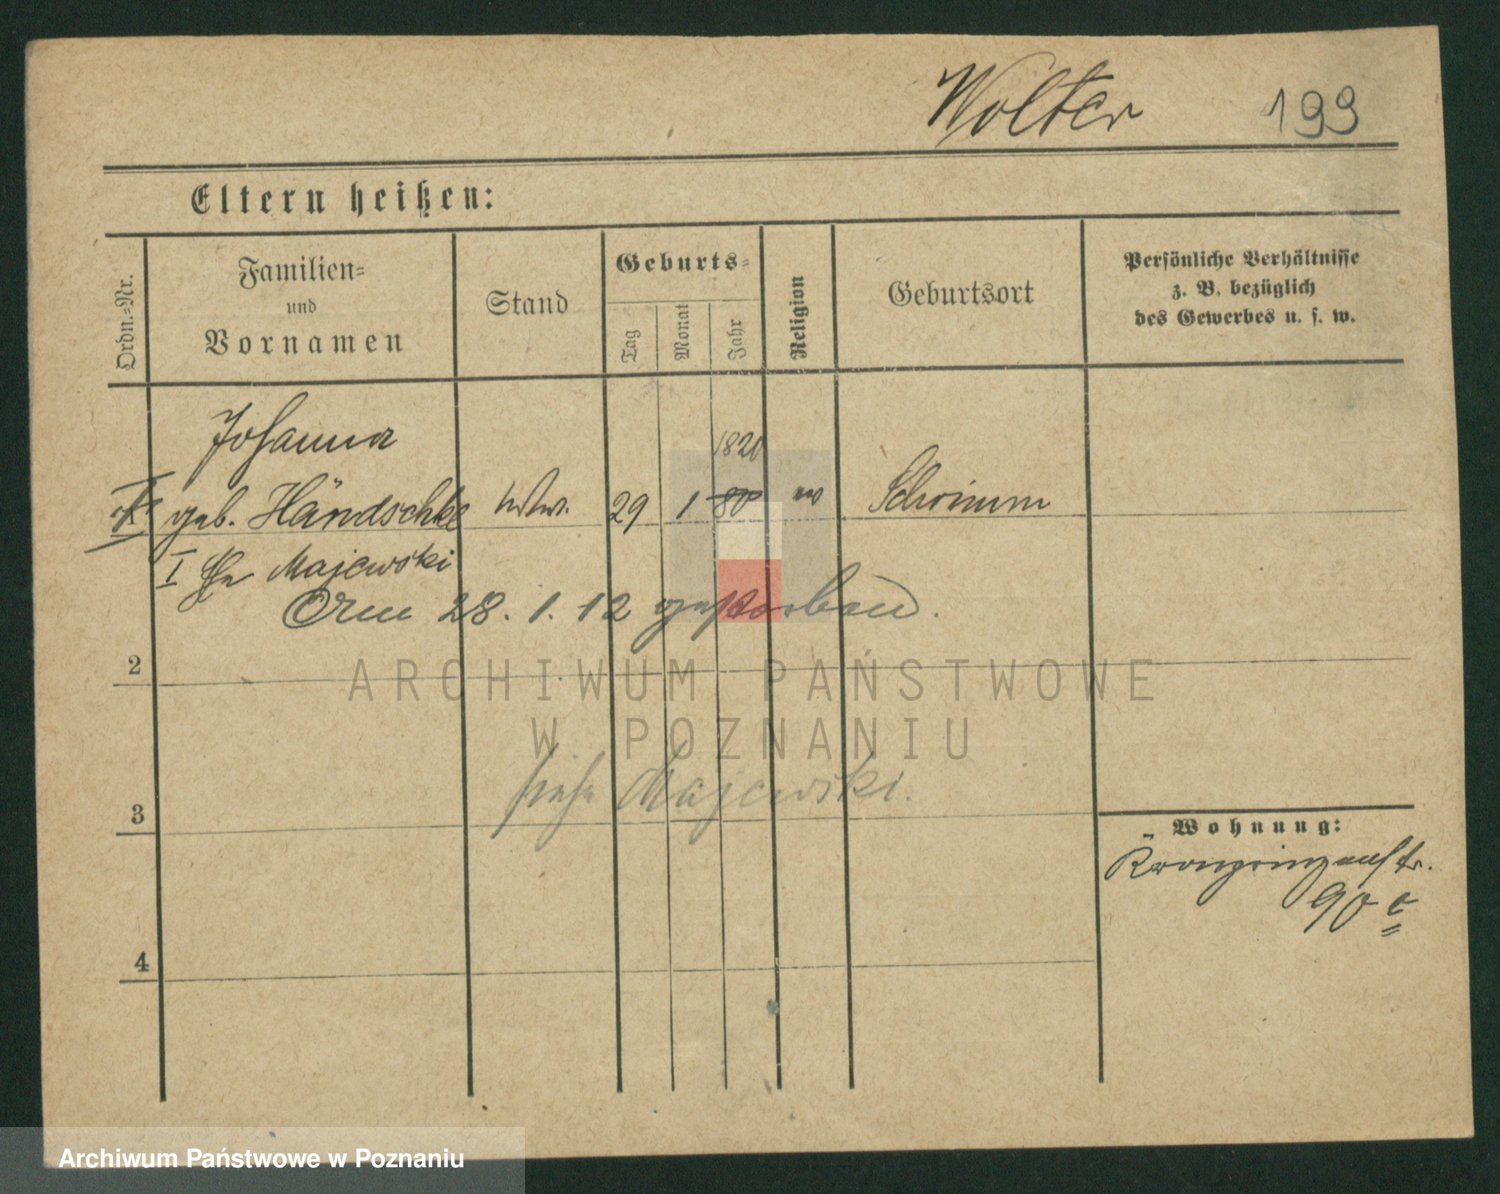 Wolter 199
Eltern heißen:
Ordn.=Nr.
Familien=
und
Vornamen
Stand
Geburts=
Tag
Monat
Jahr
Religion
Geburtsort
Persönliche Verhältnisse
z. B. bezüglich
des Gewerbes u. s. w.
Johanna
1820
geb. Händschke Wtw. 29 1 80 Schrimm
I Majewski
Am 28. 1. 12 gestorben.
2
ARCHIWUM PAŃSTWOWE
W POZNANIU
siehe Majewski.
3
Wohnung:
Kronprinzenstr.
90 c
4
Archiwum Państwowe w Poznaniu